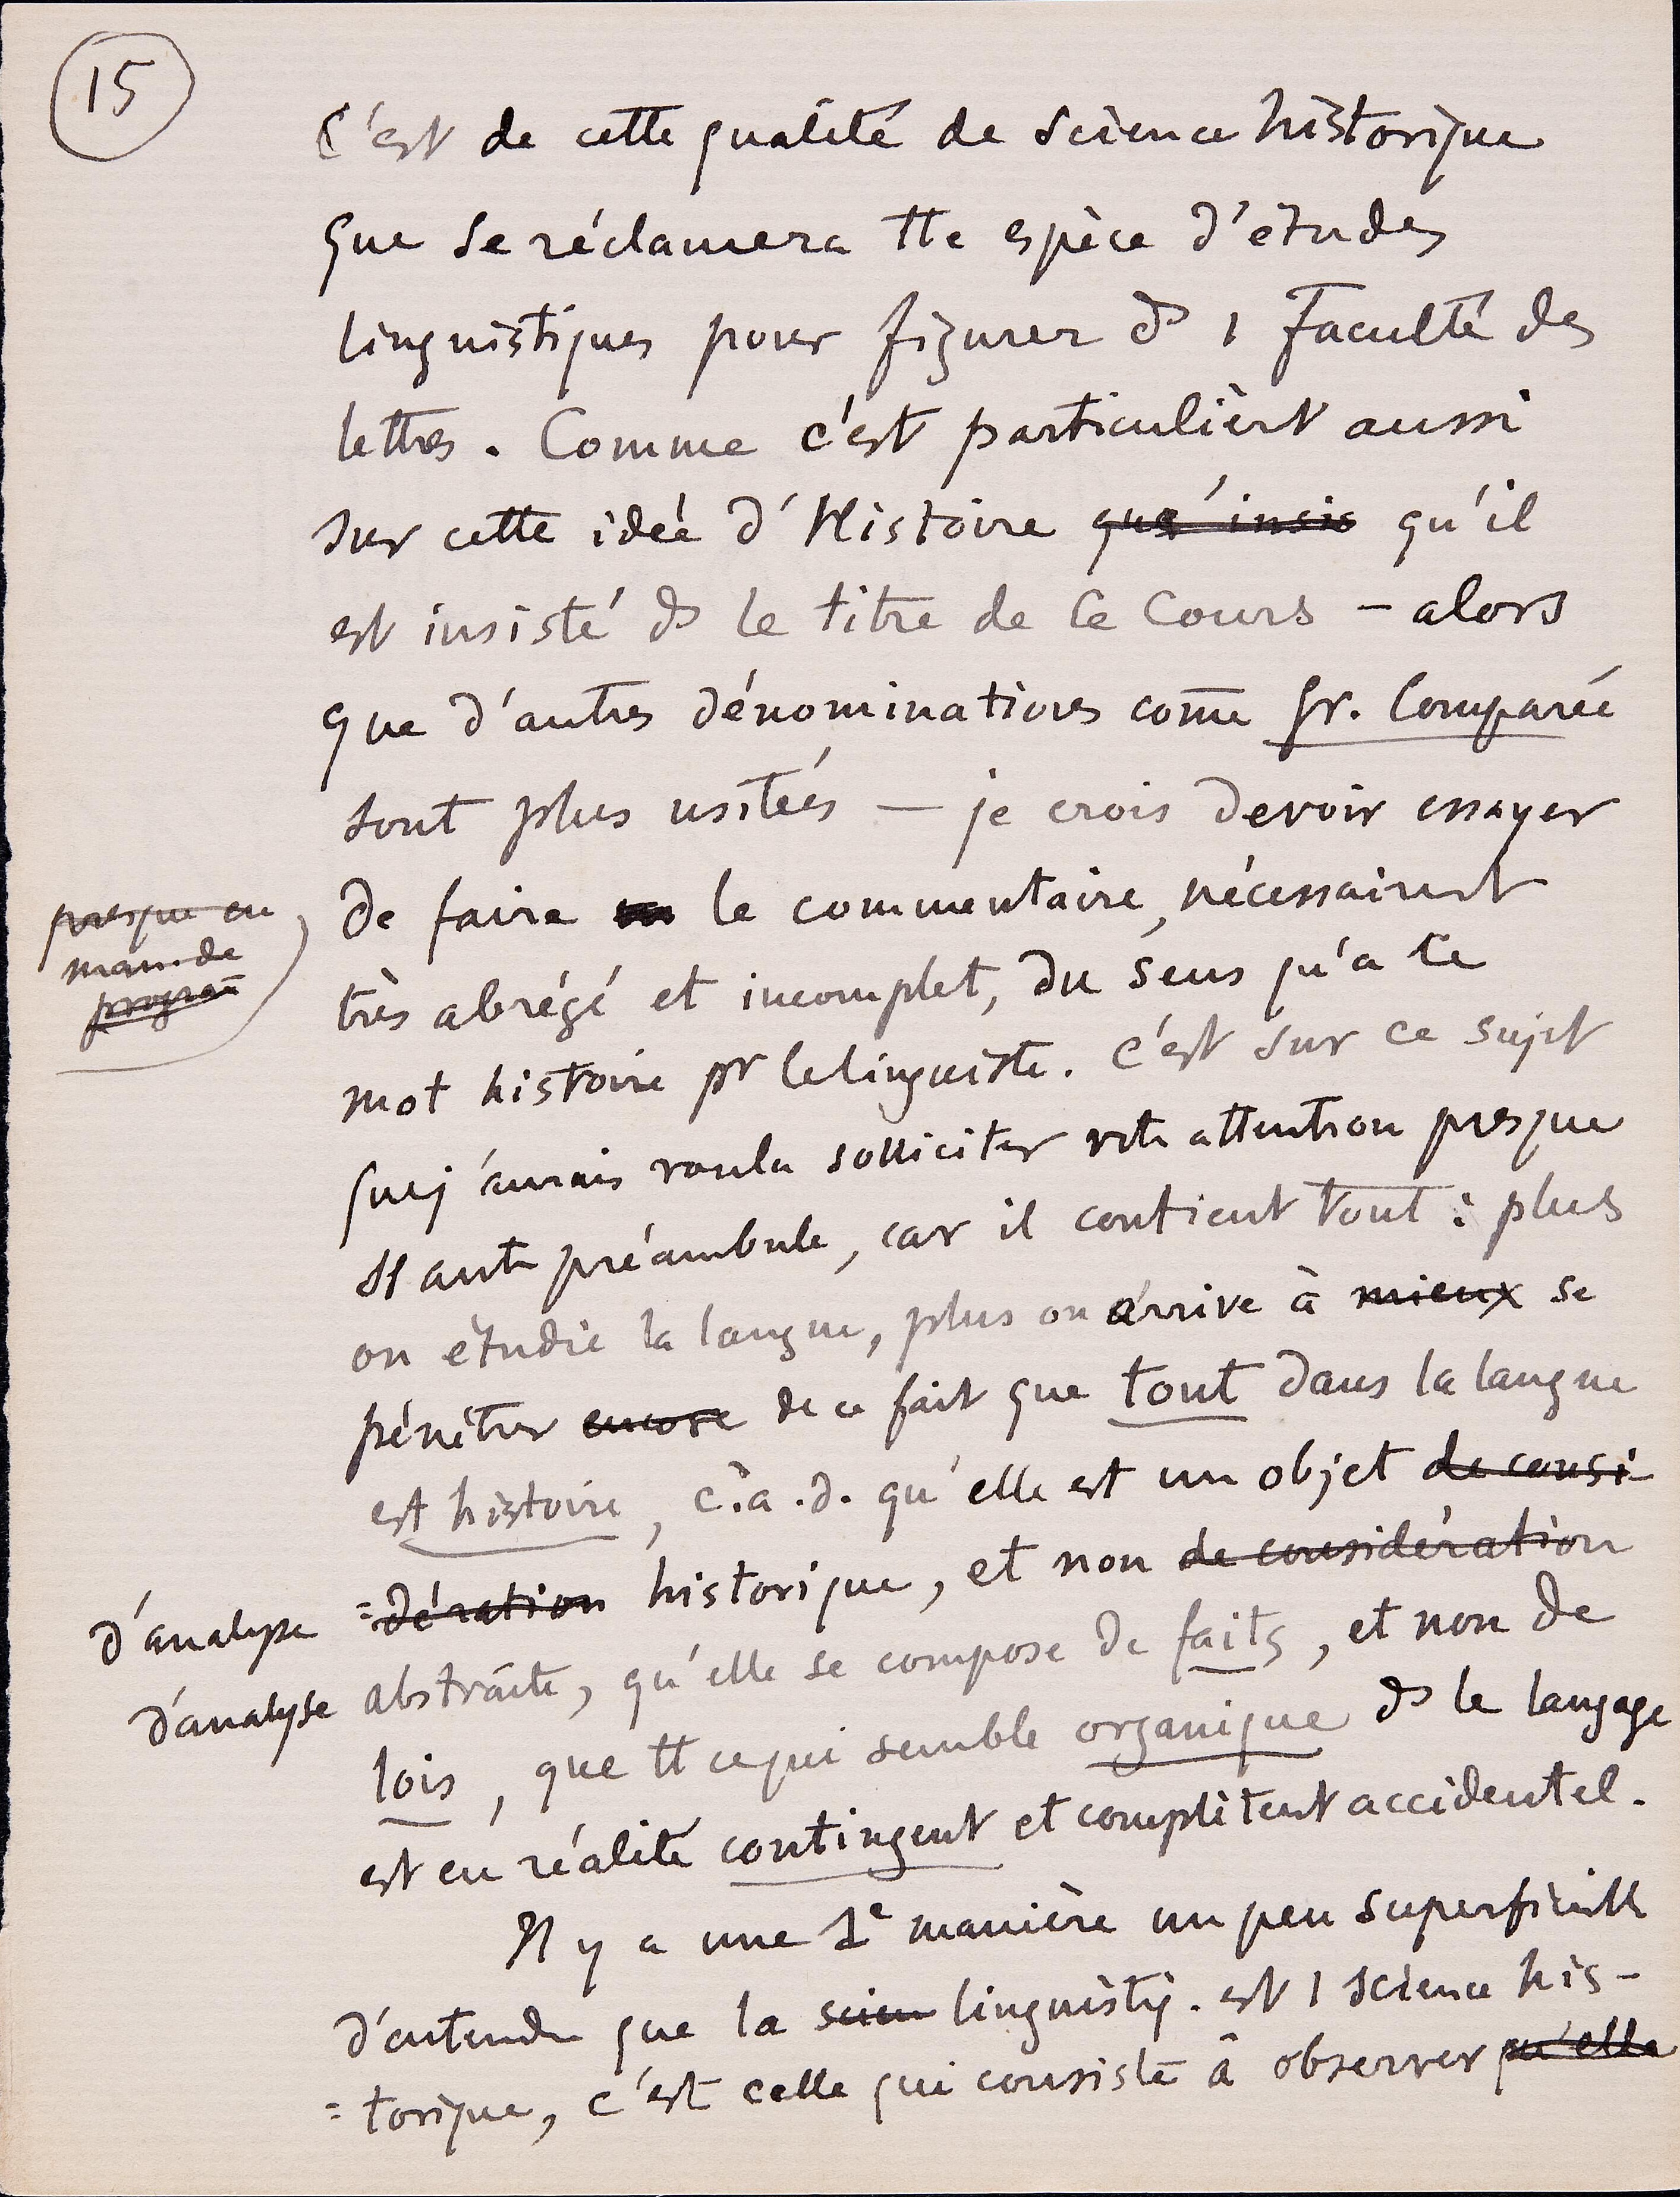 15
C'est de cette qualité de science historique
que se réclamera tte espèce d'études
linguistiques pour figurer ds 1 Faculté des
lettres. Comme c'est particulièrt aussi
sur cette idée d'Histoire que'insis qu'il
est insisté ds le titre de ce Cours – alors
que d'autres dénominations come Gr. Comparée
sont plus usitées – je crois devoir essayer
de faire le commentaire, nécessairemt
presque en
man. de
très abrégé et incomplet, du sens qu'a ce
mot histoire pr le linguiste. C'est sur ce sujet
que j'aurais voulu solliciter votr attention presque
ss autr préambule, car il contient tout : plus
on étudie la langue, plus on arrive à mieux se
pénétrer encore de ce fait que tout dans la langue
est histoire, c.à.d. qu'elle est un objet de consi
d'analyse =dération historique, et non de considération
d'analyse abstraite, qu'elle se compose de faits, et non de
lois, que tt ce qui semble organique ds le langage
est en réalité contingent et complètent accidentel.
Il y a une 1e manière un peu superficielle
d'entendre que la scien linguistiq. est 1 science his-
=torique, c'est celle qui consiste à observer qu'elle